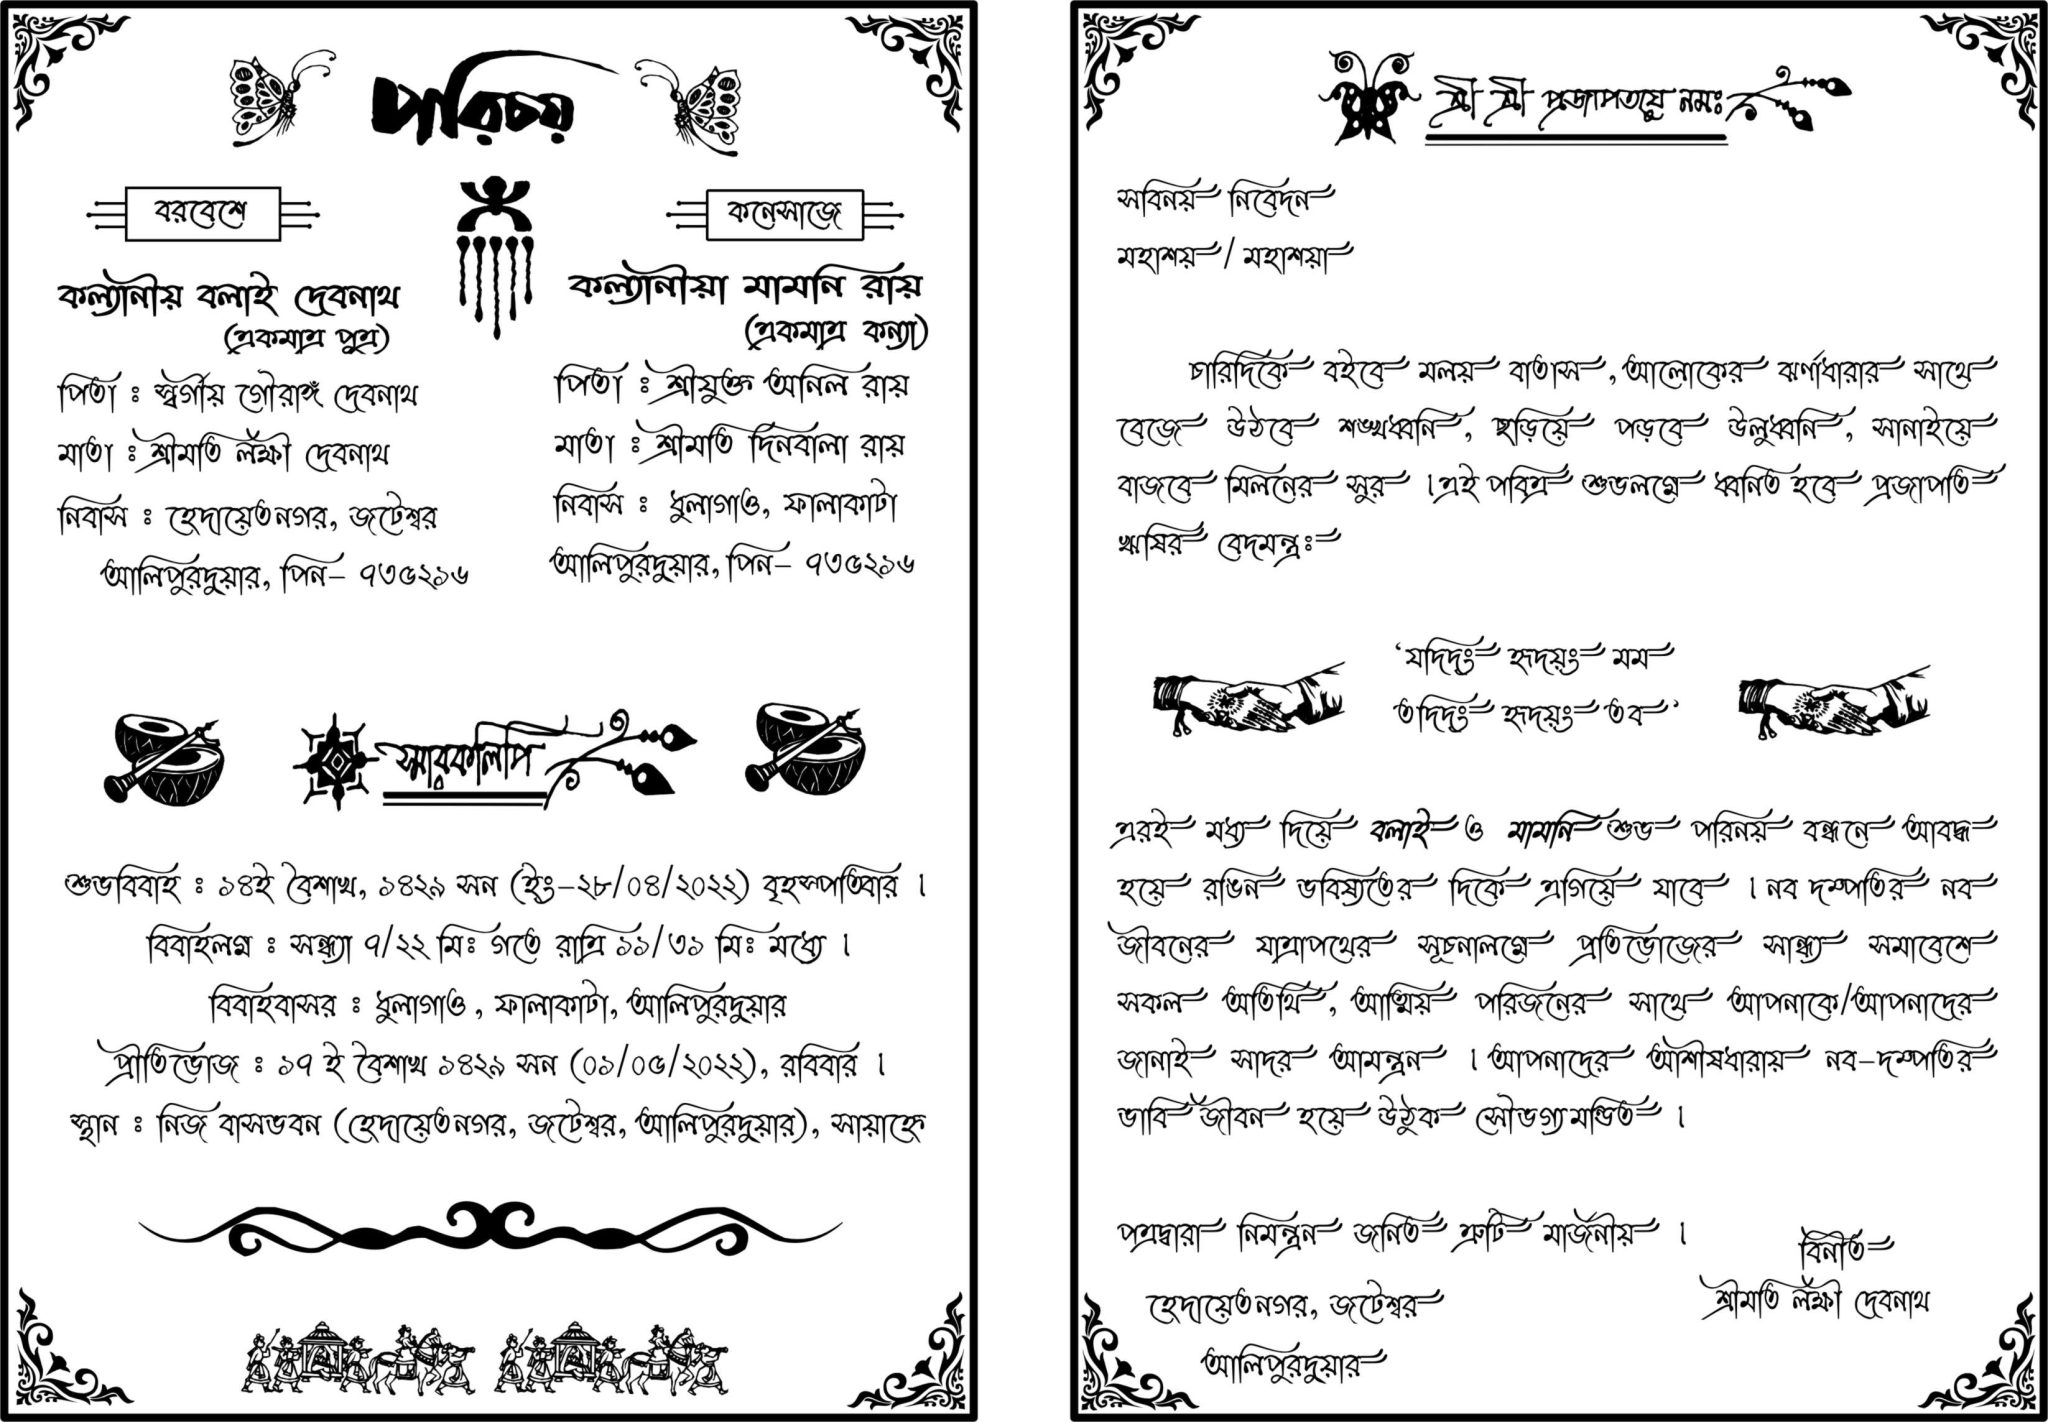 পরিচয়
বরবেশে
কল্যানীয় বলাই দেবনাথ
(একমাত্র পুত্র)
পিতা : স্বর্গীয় গৌরাঙ্গ দেবনাথ
মাতা : শ্রীমতি লক্ষ্মী দেবনাথ
নিবাস : হেদায়েতনগর, জটেশ্বর
আলিপুরদুয়ার, পিন- ৭৩৫২১৬
কনেসাজে
কল্যানীয়া মামনি রায়
(একমাত্র কন্যা)
পিতা : শ্রীযুক্ত অনিল রায়
মাতা : শ্রীমতি দিনবালা রায়
নিবাস : ধুলাগাও, ফালাকাটা
আলিপুরদুয়ার, পিন- ৭৩৫২১৬
স্মারকলিপি
শুভবিবাহ : ১৪ই বৈশাখ, ১৪২৯ সন (ইং-২৮/০৪/২০২২) বৃহস্পতিবার ।
বিবাহলগ্ন : সন্ধ্যা ৭/২২ মিঃ গতে রাত্রি ১১/৩১ মিঃ মধ্যে ।
বিবাহবাসর : ধুলাগাও, ফালাকাটা, আলিপুরদুয়ার
প্রীতিভোজ : ১৭ ই বৈশাখ ১৪২৯ সন (০১/০৫/২০২২), রবিবার ।
স্থান : নিজ বাসভবন (হেদায়েতনগর, জটেশ্বর, আলিপুরদুয়ার), সায়াহ্নে
শ্রী শ্রী প্রজাপতয়ে নমঃ
সবিনয় নিবেদন
মহাশয়/ মহাশয়া
চারিদিকে বইবে মলয় বাতাস, আলোকের ঝর্ণাধারার সাথে
বেজে উঠবে শঙ্খধ্বনি, ছড়িয়ে পড়বে উলুধ্বনি, সানাইয়ে
বাজবে মিলনের সুর । এই পবিত্র শুভলগ্নে ধ্বনিত হবে প্রজাপতি
ঋষির বেদমন্ত্রঃ
‘যদিদং হৃদয়ং মম
তদিদং হৃদয়ং তব’
এরই মধ্য দিয়ে বলাই ও মামনি শুভ পরিনয় বন্ধনে আবদ্ধ
হয়ে রঙিন ভবিষ্যতের দিকে এগিয়ে যাবে । নব দম্পতির নব
জীবনের যাত্রাপথের সূচনালগ্নে প্রতিভোজের সান্ধ্য সমাবেশে
সকল অতিথি, আত্মিয় পরিজনের সাথে আপনাকে/আপনাদের
জানাই সাদর আমন্ত্রন । আপনাদের আশীষধারায় নব-দম্পতির
ভাবি জীবন হয়ে উঠুক সৌভগ্যমন্ডিত ।
পত্রদ্বারা নিমন্ত্রন জনিত ত্রুটি মার্জনীয় ।
বিনীত
শ্রীমতি লক্ষ্মী দেবনাথ
হেদায়েতনগর, জটেশ্বর
আলিপুরদুয়ার